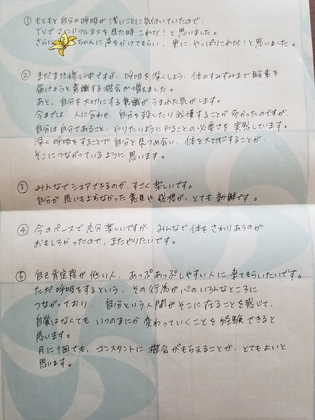 ① もともと自分の呼吸が浅いことに気付いていたので、
TVでマインドフルネスを見た時 これだ！と思いました。
さらに ちゃんに声をかけてもらい、更に やっぱりこれだ！と思いました。
② まだまだ修行中ですが、呼吸を深くしよう、体のすみずみまで酸素を
届けようと意識する機会が増えました。
あと、自分を大切にする意識が うまれた気がします。
今までは 人に合わせ、自分を殺したり 我慢することが 多かったのですが、
自分は自分であること、やりたいようにやることの必要さを 実感しています。
深く呼吸をすることで 自分と見つめ合い、体を大切にすることが、
そこにつながっているように 思います。
③ みんなで シェアできるのが、すごく楽しいです。
自分が思いもよらなかった 意見や 感想が、とても 新鮮です。
④ 今のペースで 充分 楽しいですが、みんなで 体をさわりあうのが
おもしろかったので、またやりたいです。
⑤ 自己肯定感が低い人、あっぷあっぷしやすい人に 来てもらいたいです。
ただ呼吸をするという、その行為が 心のいろんなところに
つながっており、自分という人間が そこに在ることを 感じて、
自覚はなくても いつのまにか 変わっていくことを 経験できると
思います。
月に1回でも、コンスタントに 機会がもらえることが、とてもよいと
思います。